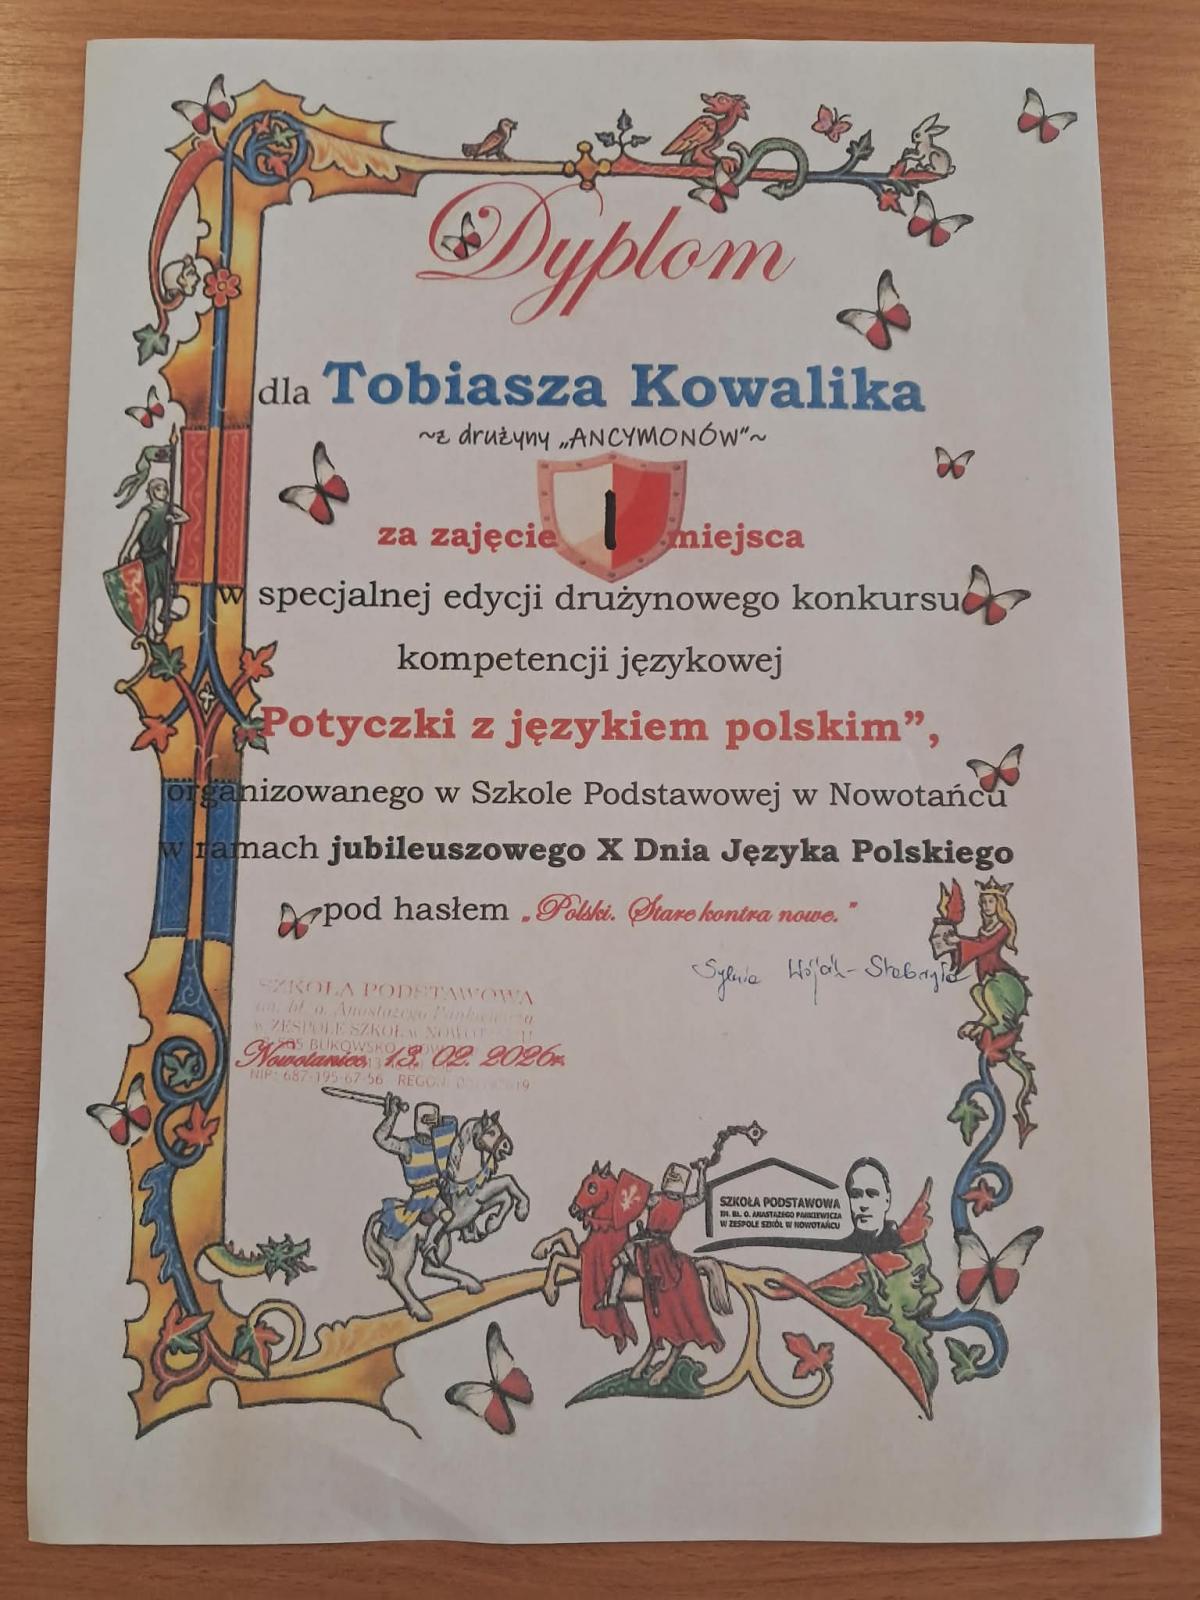 Dyplom
dla Tobiasza Kowalika
~z drużyny „ANCYMONÓW”~
za zajęcie I miejsca
w specjalnej edycji drużynowego konkursu
kompetencji językowej
Potyczki z językiem polskim”,
organizowanego w Szkole Podstawowej w Nowotańcu
w ramach jubileuszowego X Dnia Języka Polskiego
pod hasłem „Polski. Stare kontra nowe.”
Sylwia Wójcik-
SZKOŁA PODSTAWOWA
im. bł. o. Anastazego Pankiewicza
w ZESPOLE SZKÓŁ w
BUKOWSKO
Nowotaniec, 13. 02. 2026r.
NIP: 687-195-67-56 REGON:
SZKOŁA PODSTAWOWA
IM. BŁ. O. ANASTAZEGO PANKIEWICZA
W ZESPOLE SZKÓŁ W NOWOTAŃCU